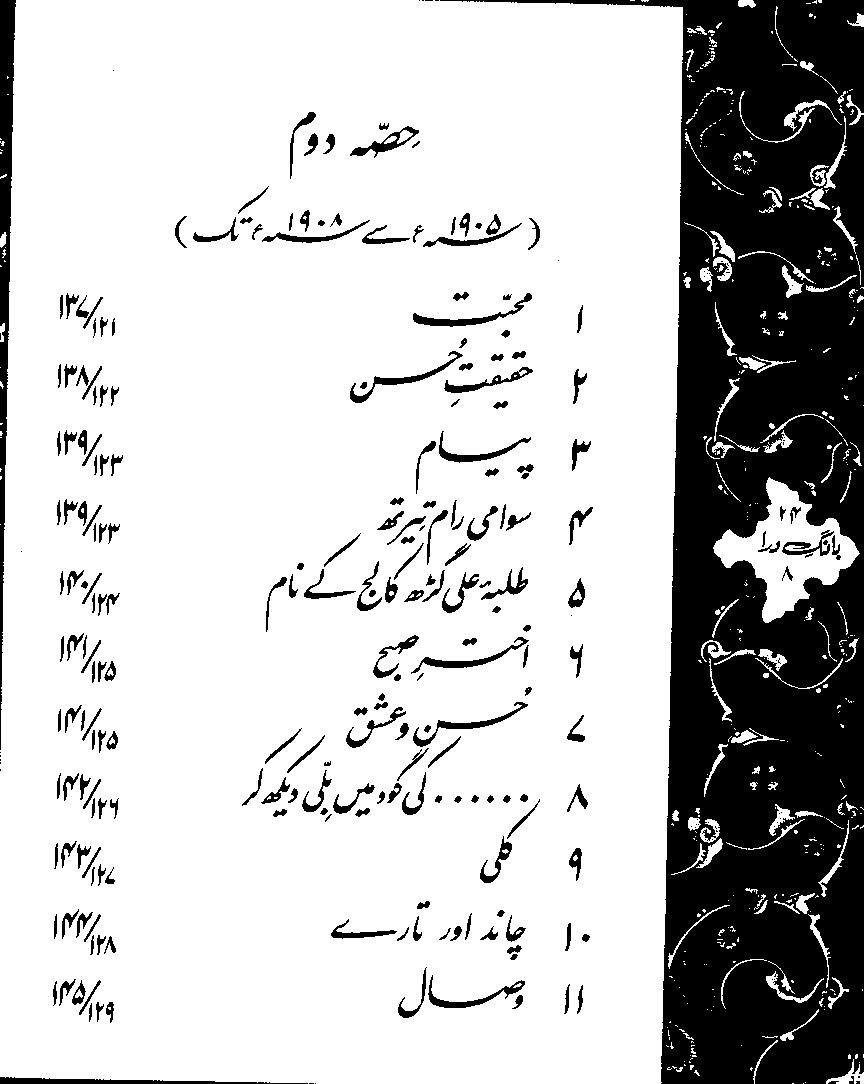 حِصّہ دوم
(۱۹۰۵ء سے ۱۹۰۸ء تک)
۱ محبّت ۱۳۷/۱۲۱
۲ حقیقتِ حُسن ۱۳۸/۱۲۲
۳ پیام ۱۳۹/۱۲۳
۴ سوامی رام تیرتھ ۱۳۹/۱۲۳
۵ طلبۂ علی گڑھ کالج کے نام ۱۴۰/۱۲۴
۶ اخترِ صبح ۱۴۱/۱۲۵
۷ حُسن و عشق ۱۴۱/۱۲۵
۸ ...... کی گود میں بِلّی دیکھ کر ۱۴۲/۱۲۶
۹ کلی ۱۴۳/۱۲۷
۱۰ چاند اور تارے ۱۴۴/۱۲۸
۱۱ وصال ۱۴۵/۱۲۹
۲۴
بانگِ درا
۸